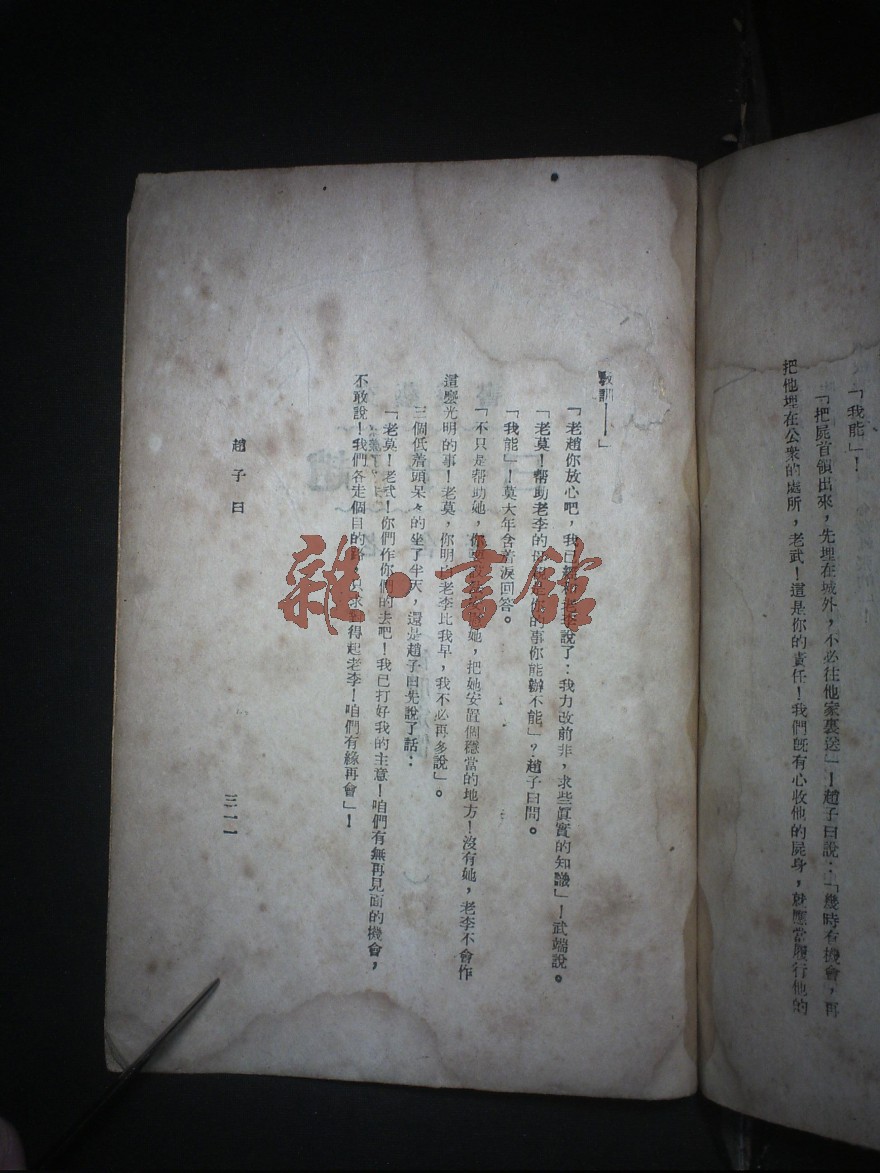 「我能」！
「把屍首領出來，先埋在城外，不必往他家裏送」！趙子曰說：「幾時有機會，再
把他埋在公衆的處所，老武！這是你的責任！我們旣有心收他的屍身，就應當履行他的
教訓——」
「老趙你放心吧，我已經和老李說了：我力改前非，求些眞實的知識」！武端說。
「老莫！帮助老李的母親是你的事你能辦不能」？趙子曰問。
「我能」！莫大年含着淚回答。
「不只是帮助她，你要她，把她安置個穩當的地方！沒有她，老李不會作
這麼光明的事！老莫，你明白老李比我早，我不必再多說」。
三個低着頭呆々的坐了半天，還是趙子曰先說了話：
「老莫！老武！你們作你們的去吧！我已打好我的主意！咱們有無再見面的機會，
不敢說！我們各走個目的路，只求對得起老李！咱們有緣再會」！
趙子曰
三一一
雜·書館